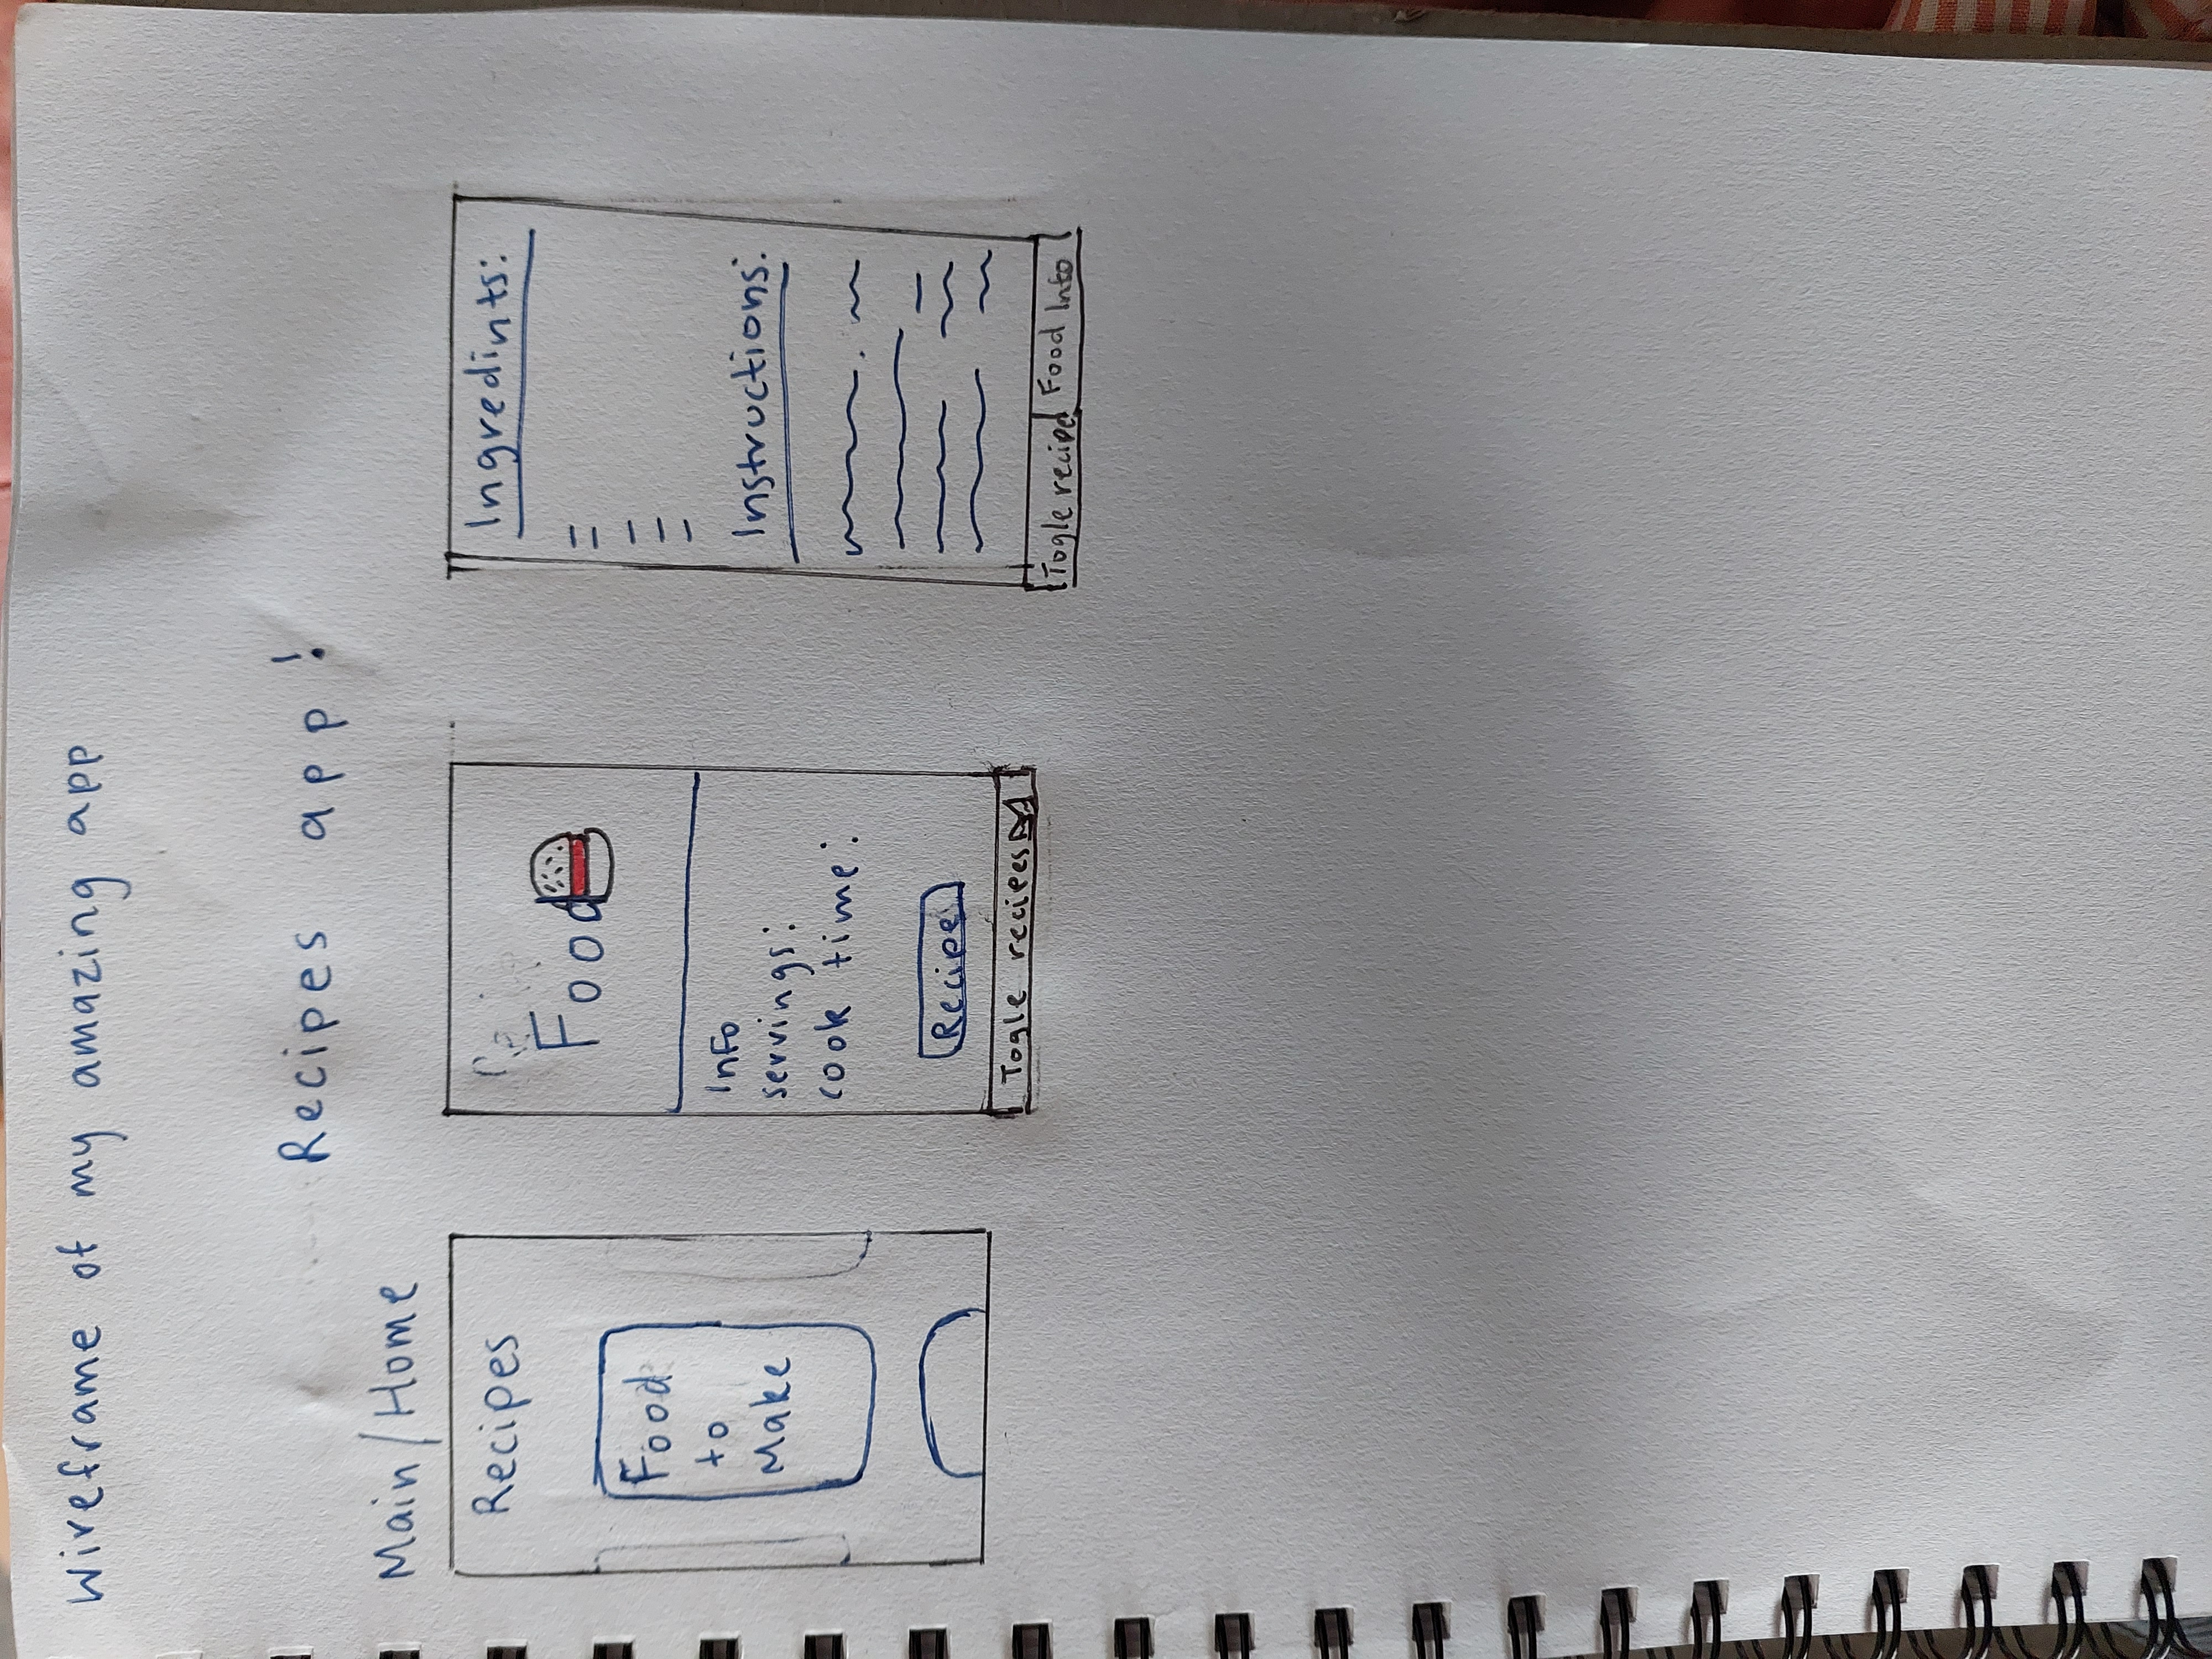 Wireframe of my amazing app
Recipes app!
Main/Home
Recipes
Food
to
Make
Food
Info
servings:
cook time:
Recipe
Togle recipes
Ingredints:
Instructions:
Togle recipe
Food Info